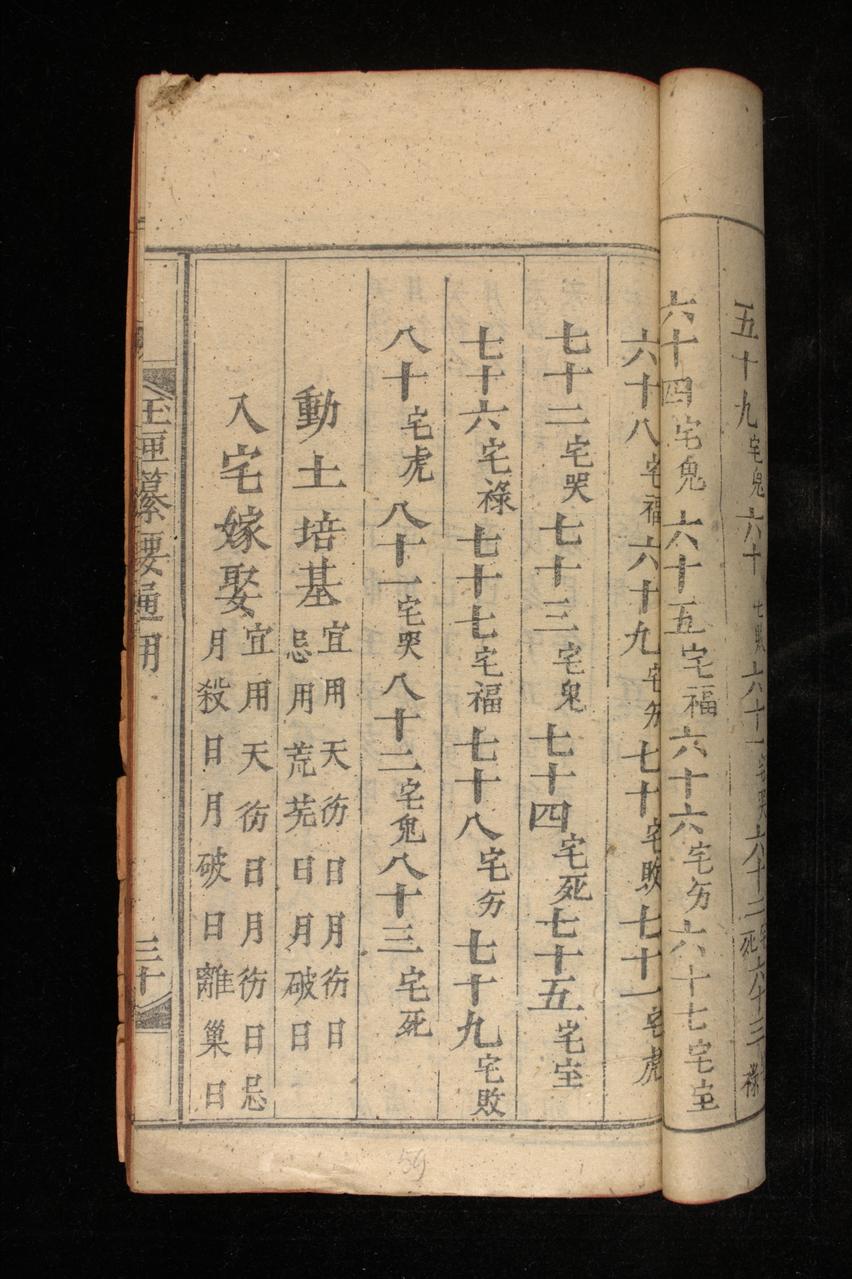 五十九宅鬼六十宅敗六十一宅哭六十二宅死六十三宅祿
六十四宅鬼六十五宅福六十六宅劳六十七宅宝
六十八宅福六十九宅劳七十宅敗七十一宅虎
七十二宅哭七十三宅鬼七十四宅死七十五宅宝
七十六宅祿七十七宅福七十八宅劳七十九宅敗
八十宅虎八十一宅哭八十二宅鬼八十三宅死
動土培基宜用天德日月德日
忌用荒芜日月破日
入宅嫁娶宜用天德日月德日忌
月殺日月破日離巢日
玉匣纂要通用
三十
59